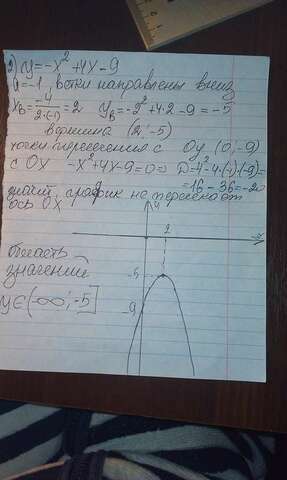 2) y=-x²+4x-9
a=-1, ветки направлены вниз
x_в=-4/(2·(-1))=2  y_в=-2²+4·2-9=-5
вершина (2,-5)
точки пересечения с Oy (0,-9)
с OX -x²+4x-9=0 D=4²-4·(-1)(-9)=
=16-36=-20
значит, график не пересекает
ось OX
y
2
x
-5
-9
область
значений
y∈(-∞;-5]